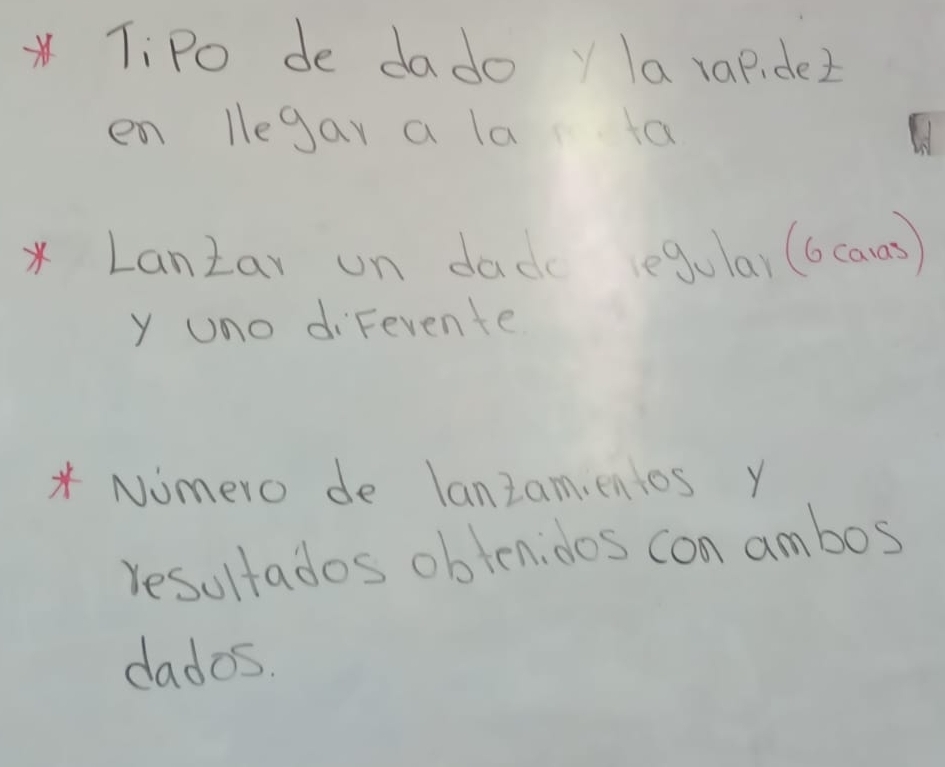 * Tipo de dado y la rapidez
en llegar a la
* Lanzar un dado regular (6 caras)
y uno diferente.
* Número de lanzamientos y
resultados obtenidos con ambos
dados.